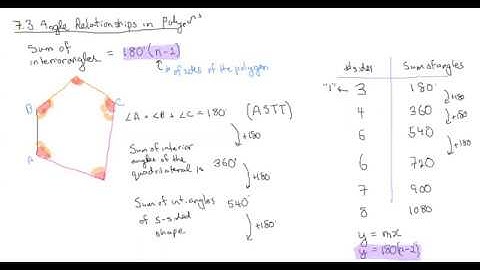 7.3 Angle Relationships in Polygons
Sum of
interior angles = 180°(n-2)
# of sides of the polygon
B
C
A
∠A + ∠B + ∠C = 180° (ASTT)
+180
Sum of interior
angles of the
quadrilateral is 360°
+180
Sum of int. angles 540°
of 5-sided
shape
+180
# sides Sum of angles
"n" 3 180°
+180
4 360
+180
5 540
+180
6 720
7 900
8 1080
y = mx
y = 180(n-2)